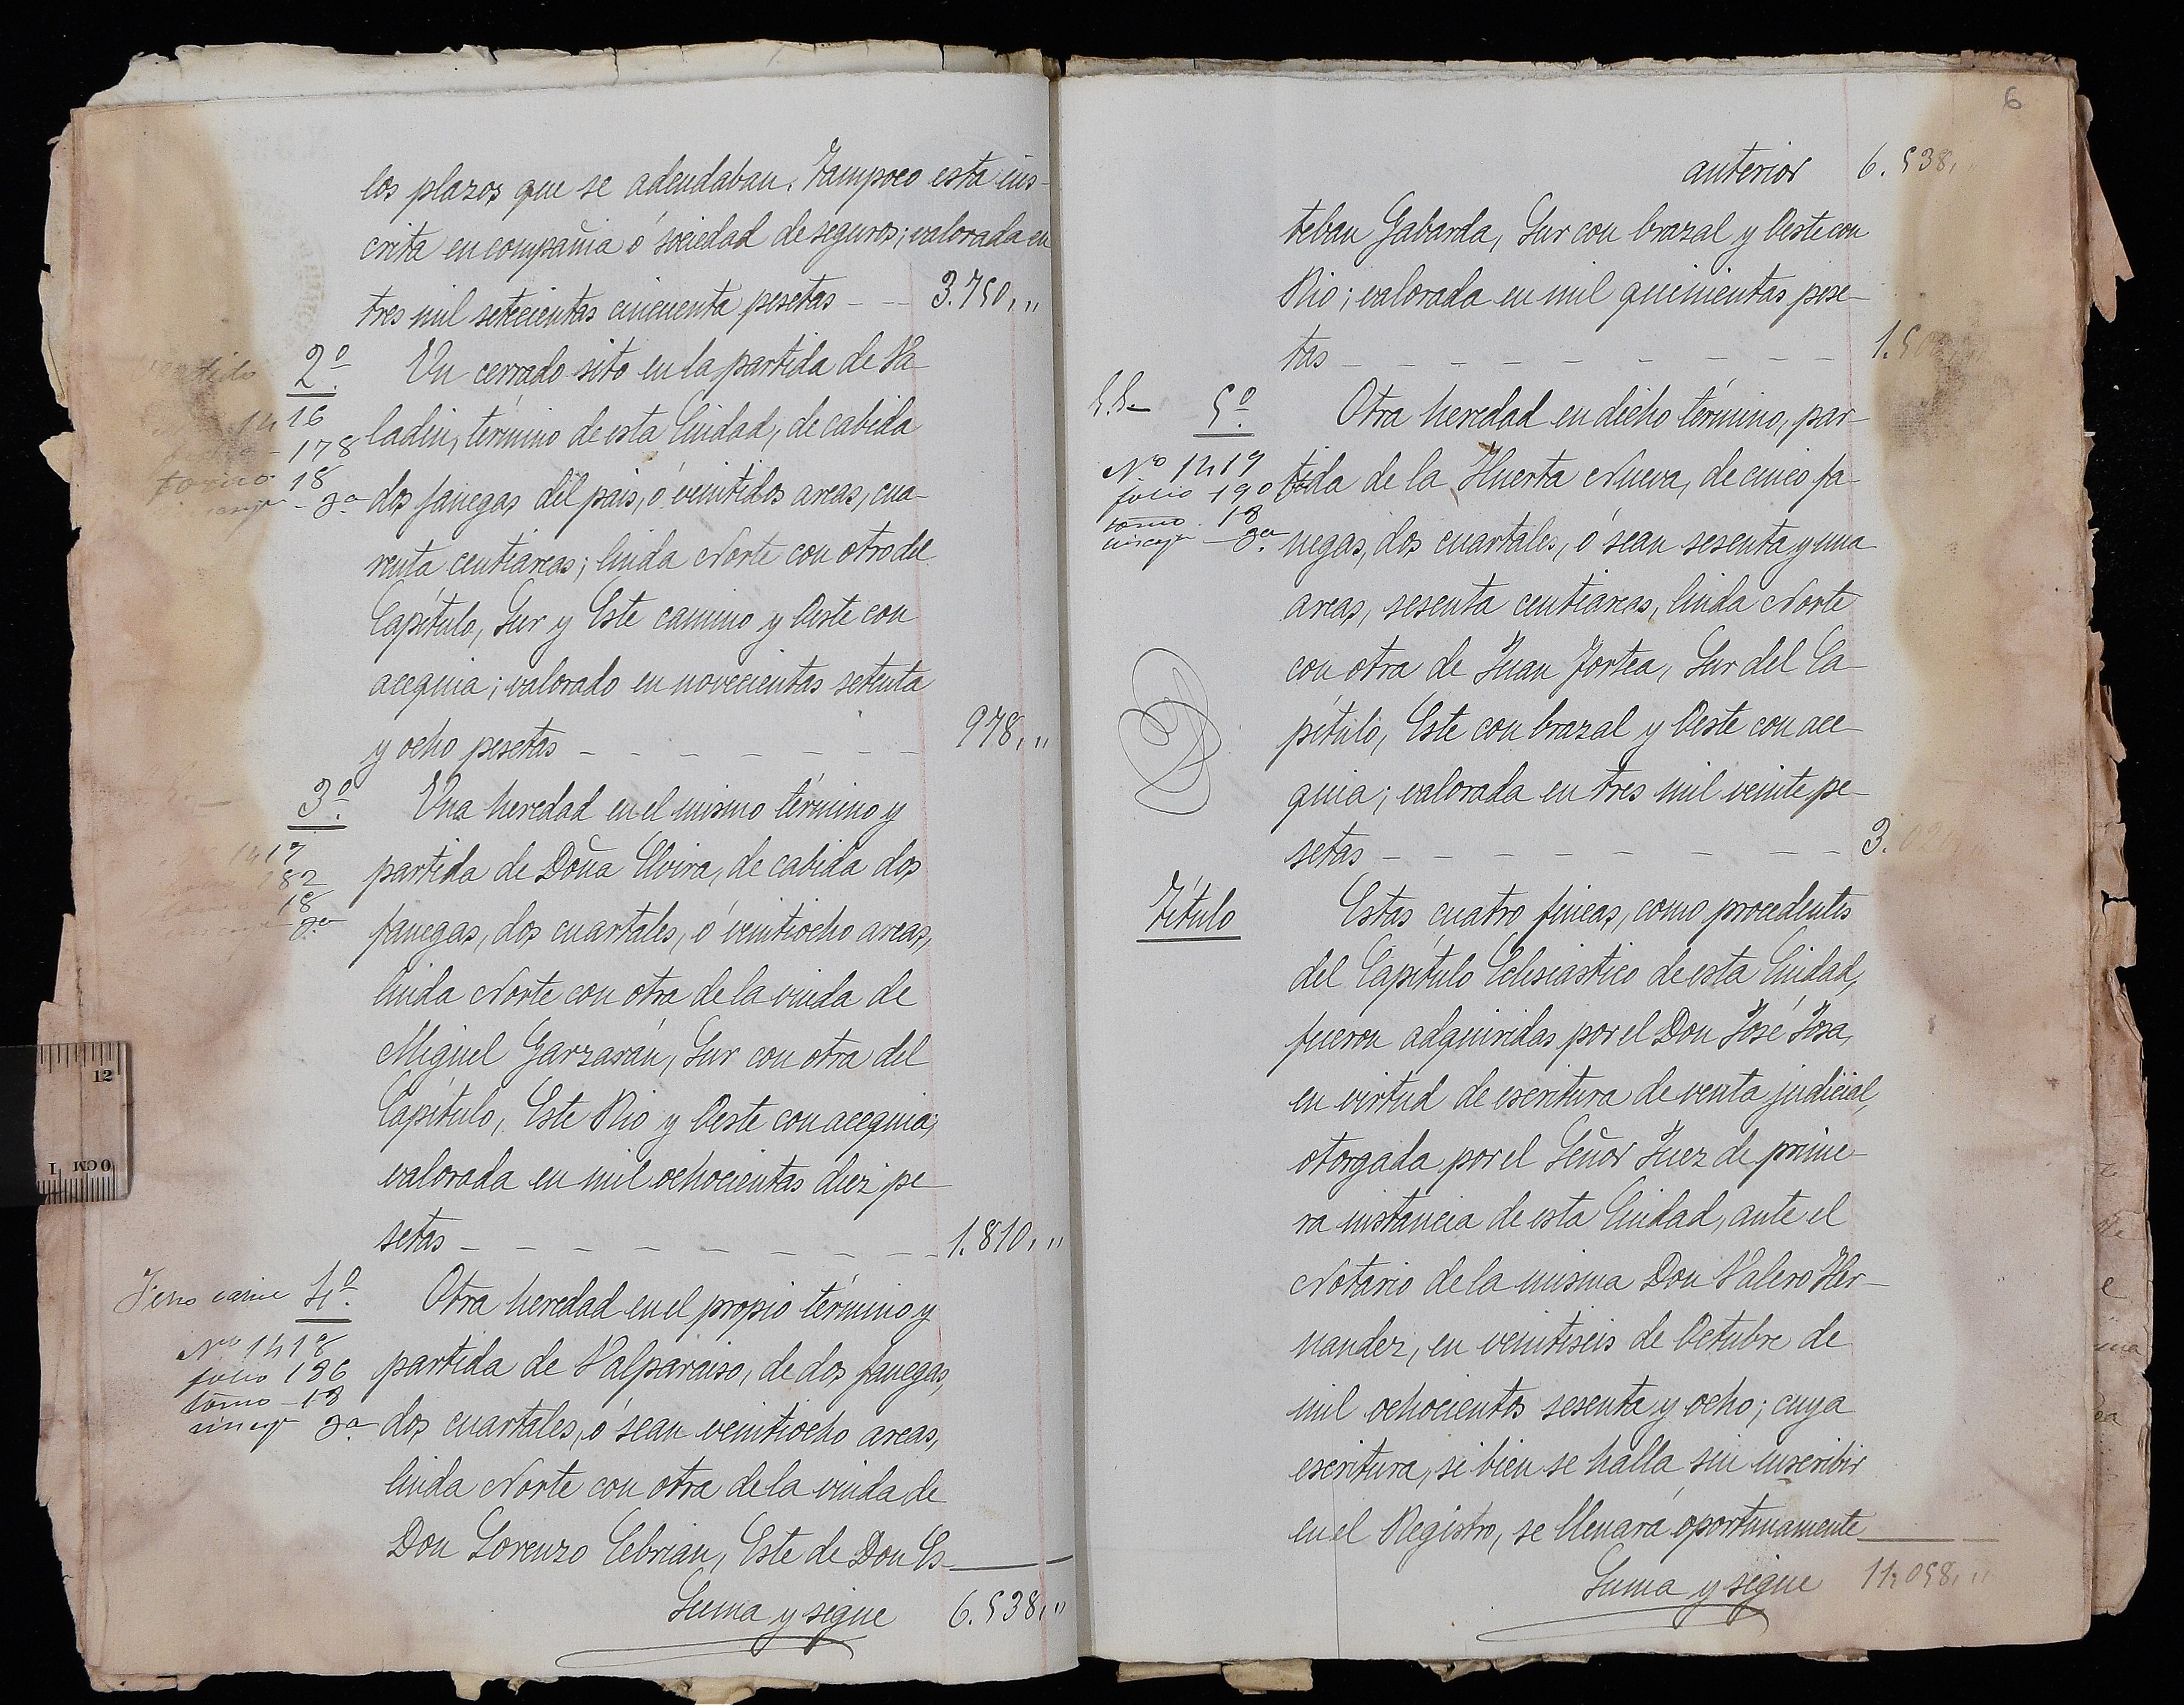 los plazos que se adeudaban. Tampoco está ins-
crita en compañia ó sociedad de seguros; valorada en
tres mil setecientas cincuenta pesetas - - 3.750,,,
2º. Un cerrado sito en la partida de Va-
1416
ladin, término de esta Ciudad, de cabida
178
18
dos fanegas del pais, ó veintidos areas, cua-
3ª
renta centiareas; linda Norte con otro del
Capítulo, Sur y Este camino y Oeste con
acequia; valorado en novecientas setenta
y ocho pesetas - - - - - - 978,,,
3º. Una heredad en el mismo término y
1417
partida de Doña Elvira, de cabida dos
182
18
3ª
fanegas, dos cuartales, ó veintiocho areas,
linda Norte con otra de la viuda de
Miguel Garzarán, Sur con otra del
Capítulo, Este Rio y Oeste con acequia;
valorada en mil ochocientas diez pe-
setas - - - - - - - - 1.810,,,
4º. Otra heredad en el propio término y
Nº 1418
partida de Valparaiso, de dos fanegas,
folio 186
tomo - 18
3ª
dos cuartales, ó sean veintiocho areas,
linda Norte con otra de la viuda de
Don Lorenzo Cebrian, Este de Don Es-
Suma y sigue 6.538,,,
6
anterior 6.538,,,
teban Gabarda, Sur con brazal y Oeste con
Rio; valorada en mil quinientas pese-
tas - - - - - - - - 1.500
5º. Otra heredad en dicho término, par-
Nº 1419
folio 190
tomo. 18
3ª
tida de la Huerta Nueva, de cinco fa-
negas, dos cuartales, ó sean sesenta y una
areas, sesenta centiareas, linda Norte
con otra de Juan Fortea, Sur del Ca-
pítulo, Este con brazal y Oeste con ace-
quia; valorada en tres mil veinte pe-
setas - - - - - - - - 3.020,,,
Título Estas cuatro fincas, como procedentes
del Capítulo Eclesiastico de esta Ciudad,
fueron adquiridas por el Don José Josa,
en virtud de escritura de venta judicial,
otorgada por el Señor Juez de prime-
ra instancia de esta Ciudad, ante el
Notario de la misma Don Valero Her-
nandez, en veintiseis de Octubre de
mil ochocientos sesenta y ocho; cuya
escritura, si bien se halla sin inscribir
en el Registro, se llenará oportunamente
Suma y sigue 11.058,,,
12
1 0CM